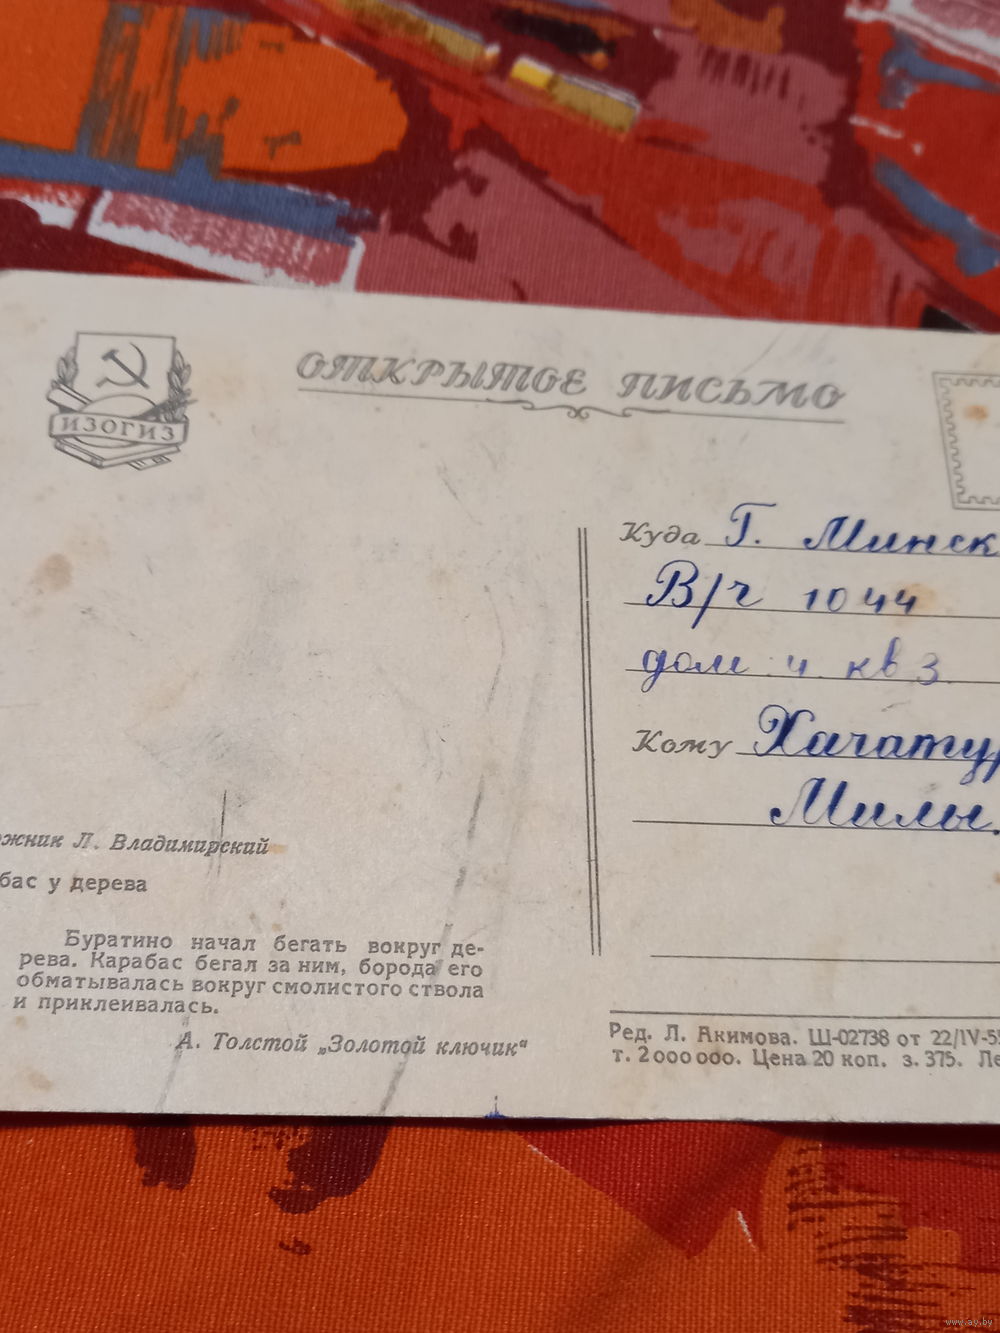 ИЗОГИЗ
ОТКРЫТОЕ ПИСЬМО
Куда Г. Минск
В/ч 1044
дом 4 кв 3
Кому Хачатур
Милы.
жник Л. Владимирский
бас у дерева
Буратино начал бегать вокруг де-
рева. Карабас бегал за ним, борода его
обматывалась вокруг смолистого ствола
и приклеивалась.
А. Толстой „Золотой ключик“
Ред. Л. Акимова. Ш-02738 от 22/IV-55
т. 2 000 000. Цена 20 коп. з. 375. Ле
www.ay.by